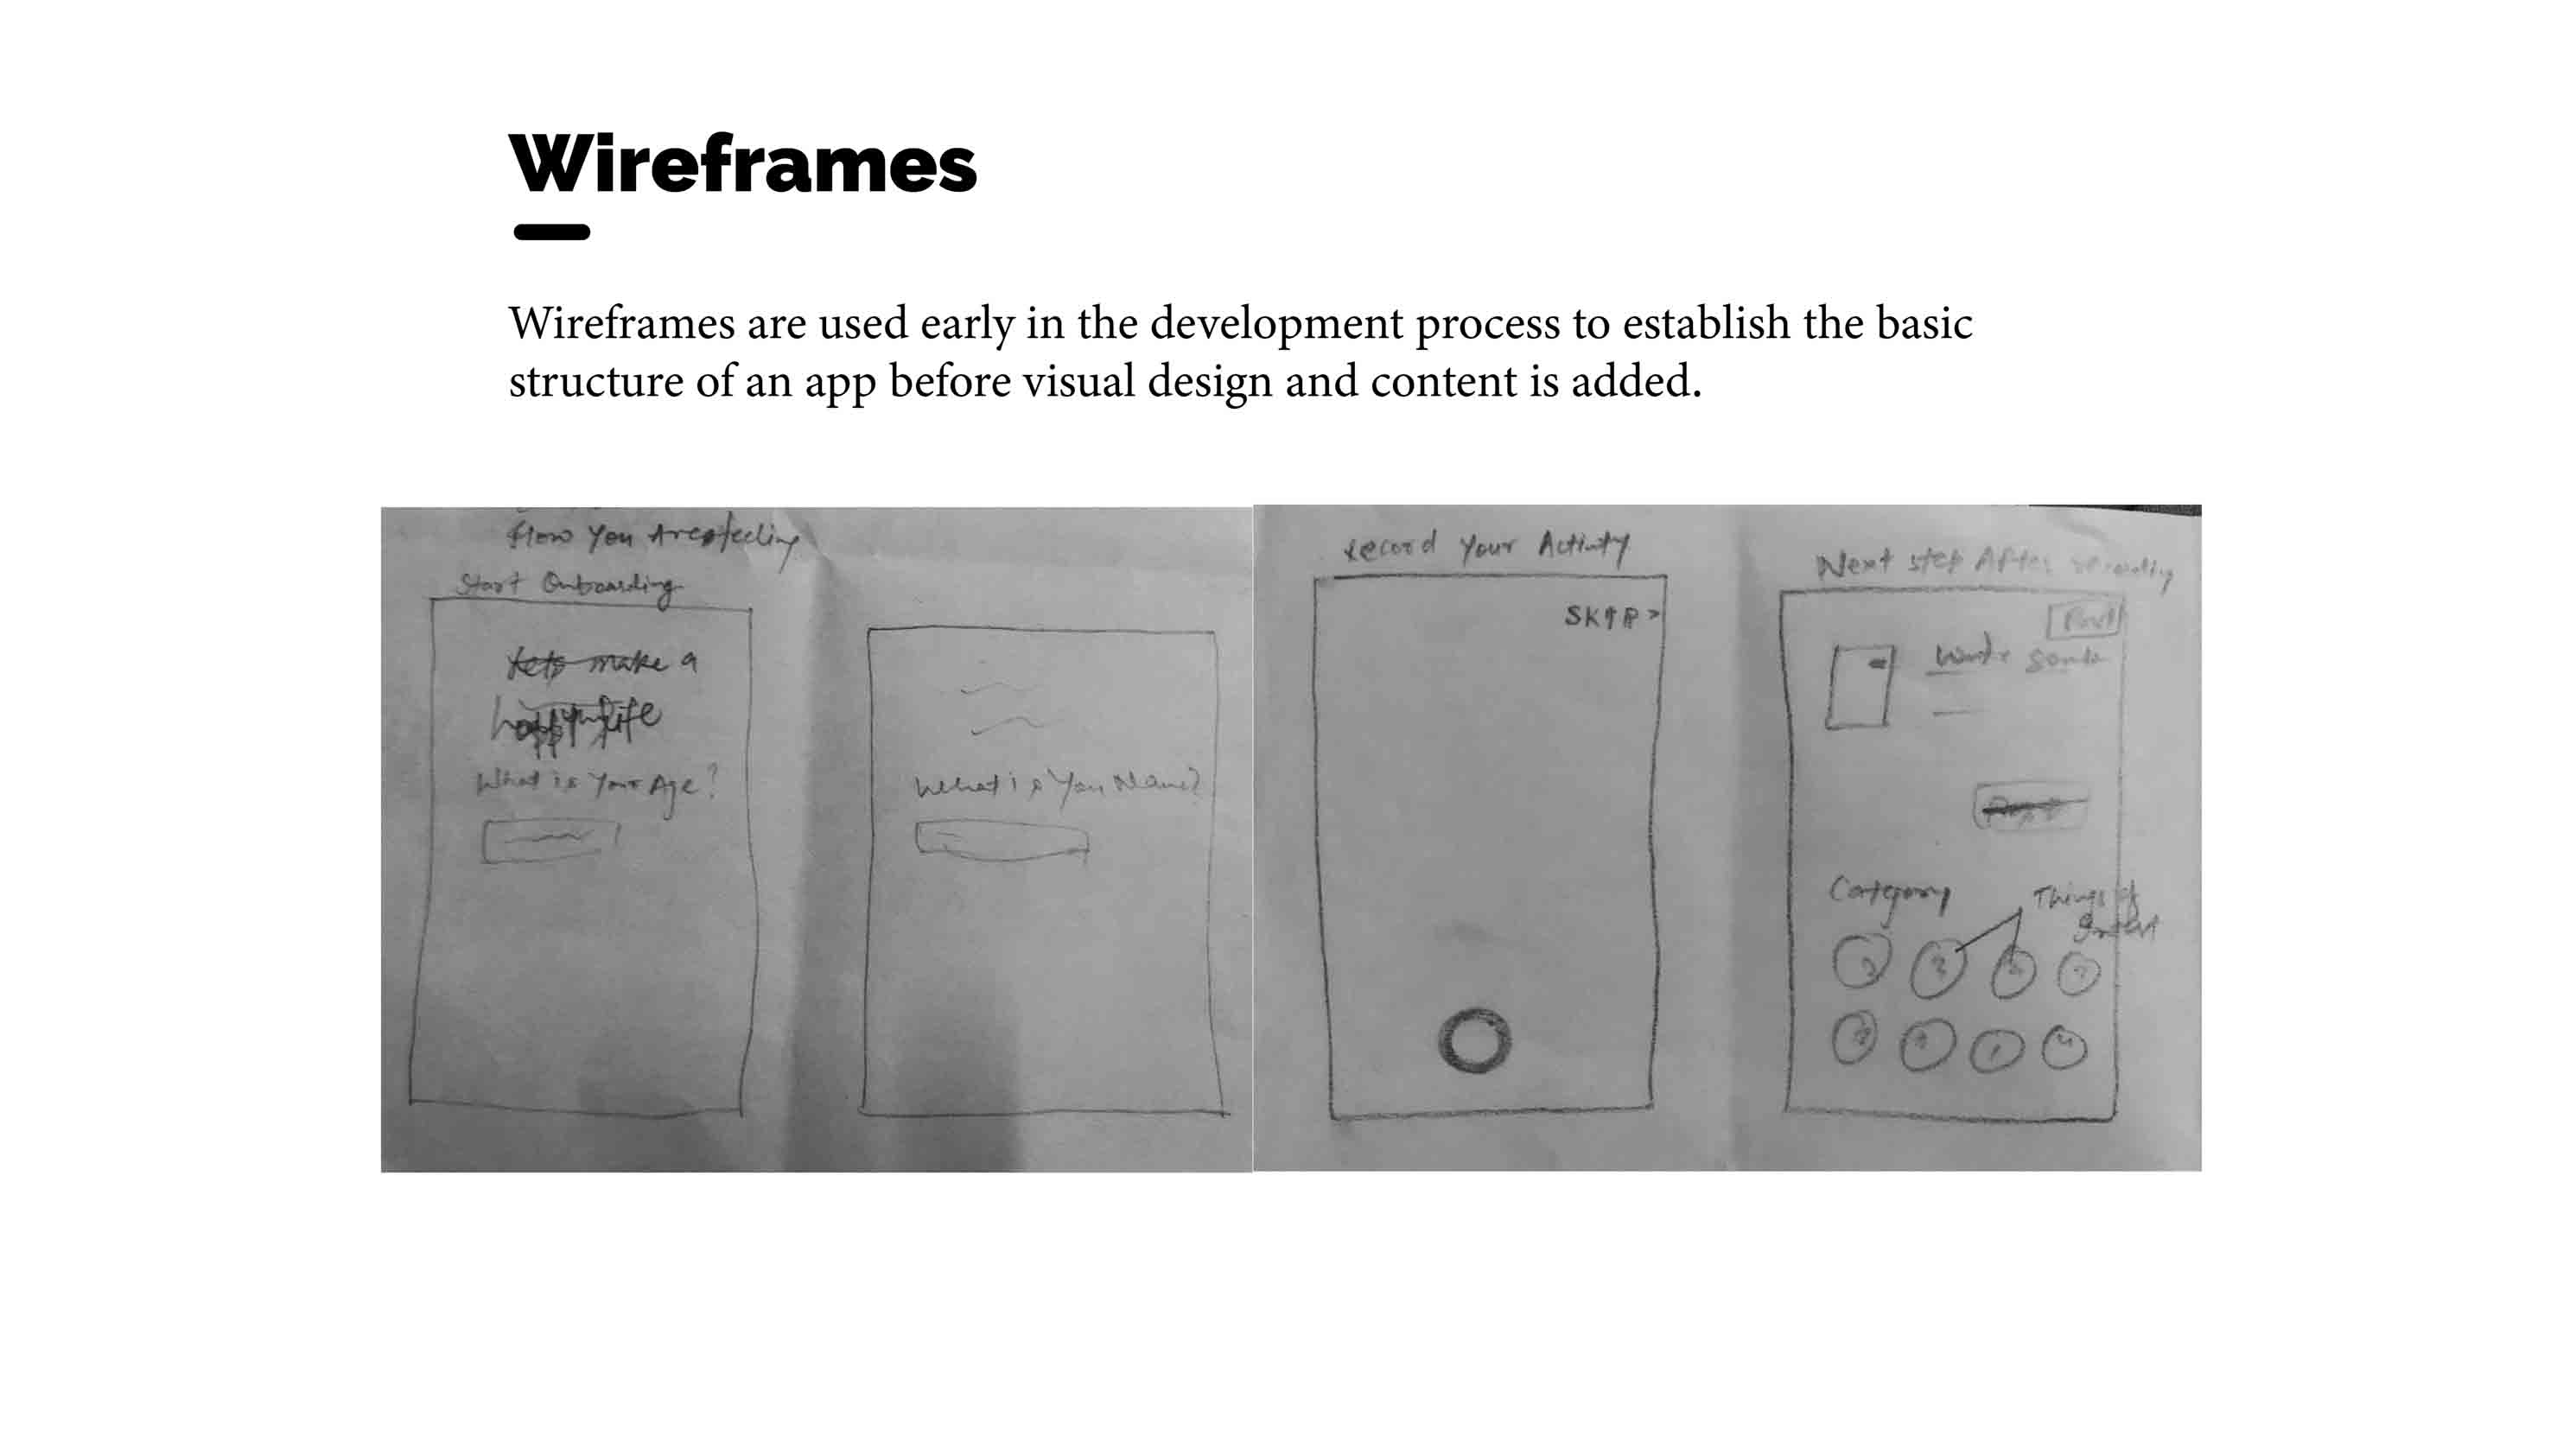 Wireframes
Wireframes are used early in the development process to establish the basic
structure of an app before visual design and content is added.
How You Are feeling
Start Onboarding
Lets make a
happy life
What is Your Age?
What is You Name?
Record Your Activity
SKIP >
Next step After recording
Post
Write
Category
Things of